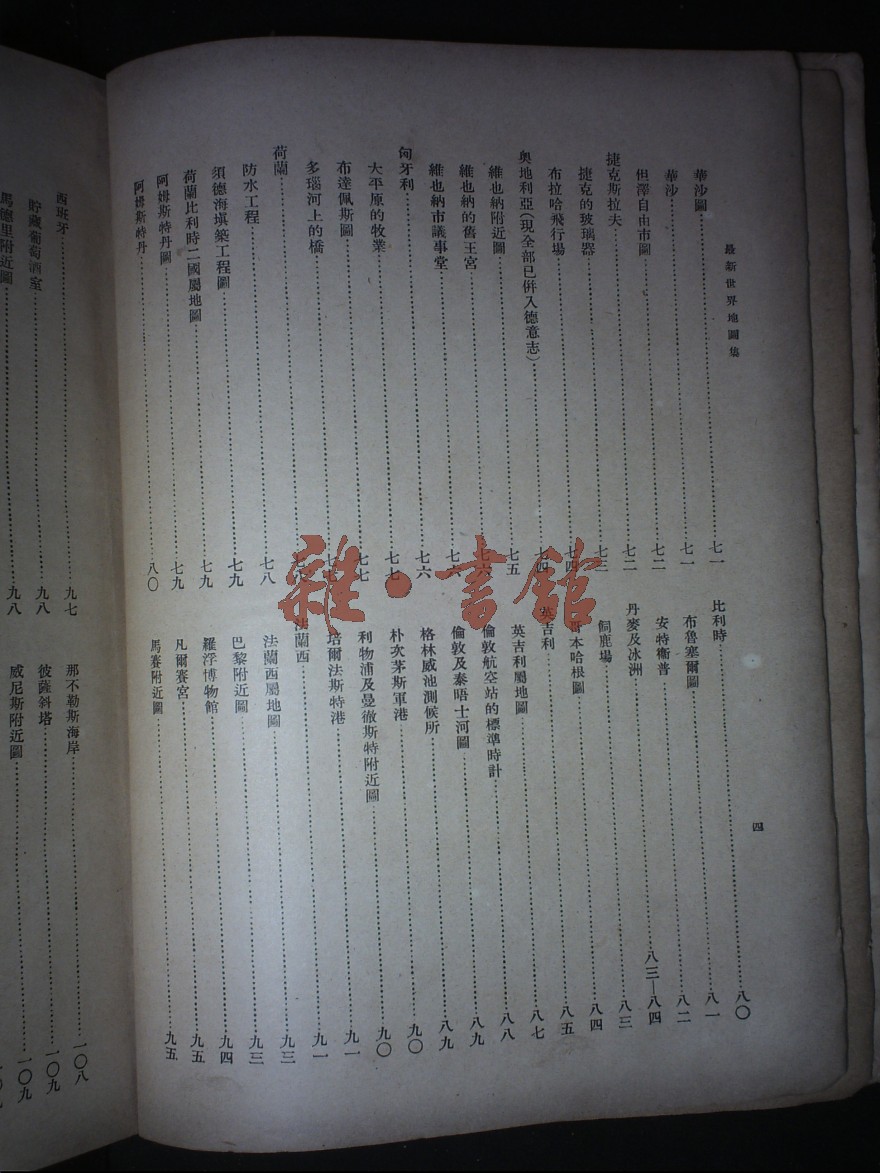 最新世界地圖集
四
華沙圖⋯⋯七一
華沙⋯⋯七一
但澤自由市圖⋯⋯七二
捷克斯拉夫⋯⋯七二
捷克的玻璃器⋯⋯七三
布拉哈飛行場⋯⋯七四
奧地利亞(現全部已併入德意志)⋯⋯七四
維也納附近圖⋯⋯七五
維也納的舊王宮⋯⋯七六
維也納市議事堂⋯⋯七六
匈牙利⋯⋯七六
大平原的牧業⋯⋯七七
布達佩斯圖⋯⋯七七
多瑙河上的橋⋯⋯七七
荷蘭⋯⋯七八
防水工程⋯⋯七八
須德海填築工程圖⋯⋯七九
荷蘭比利時二國屬地圖⋯⋯七九
阿姆斯特丹圖⋯⋯七九
阿姆斯特丹⋯⋯八〇
比利時⋯⋯八〇
布魯塞爾圖⋯⋯八一
安特衞普⋯⋯八二
丹麥及冰洲⋯⋯八三—八四
飼鹿場⋯⋯八三
哥本哈根圖⋯⋯八四
英吉利⋯⋯八五
英吉利屬地圖⋯⋯八七
倫敦航空站的標準時計⋯⋯八八
倫敦及泰晤士河圖⋯⋯八九
格林威池測候所⋯⋯八九
朴次茅斯軍港⋯⋯九〇
利物浦及曼徹斯特附近圖⋯⋯九〇
培爾法斯特港⋯⋯九一
法蘭西⋯⋯九一
法蘭西屬地圖⋯⋯九三
巴黎附近圖⋯⋯九三
羅浮博物館⋯⋯九四
凡爾賽宮⋯⋯九五
馬賽附近圖⋯⋯九五
西班牙⋯⋯九七
貯藏葡萄酒室⋯⋯九八
馬德里附近圖⋯⋯九八
那不勒斯海岸⋯⋯一〇八
彼薩斜塔⋯⋯一〇九
威尼斯附近圖⋯⋯一〇九
雜·書館